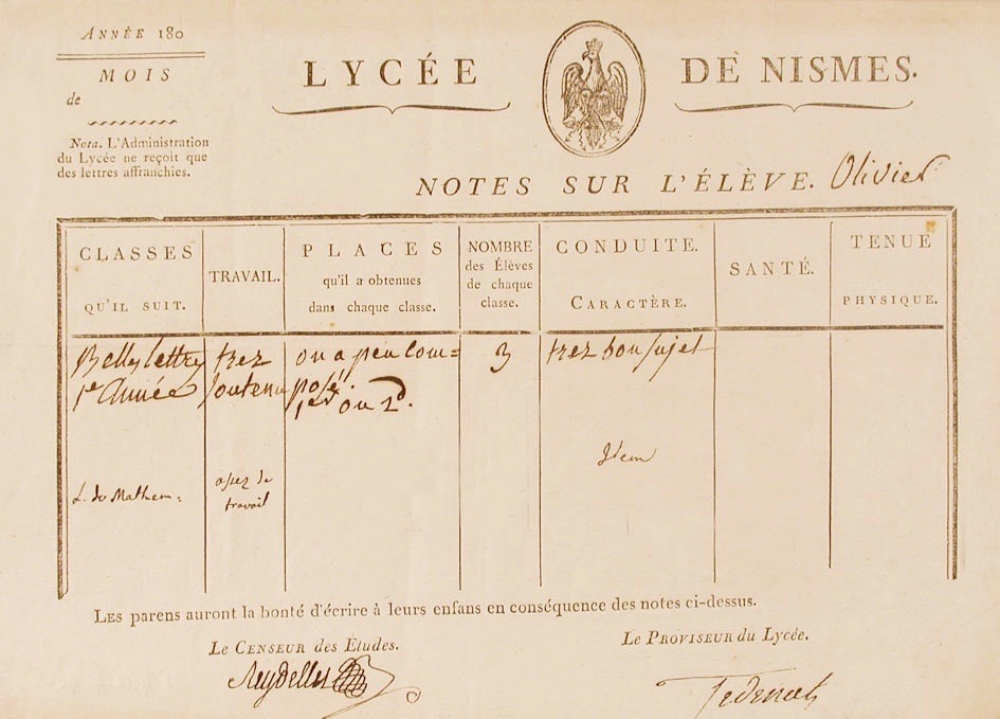 ANNÉE 180
MOIS
de
Nota. L'Administration
du Lycée ne reçoit que
des lettres affranchies.
LYCÉE DE NISMES.
NOTES SUR L'ÉLÈVE. Olivier
CLASSES
QU'IL SUIT.
TRAVAIL.
PLACES
qu'il a obtenues
dans chaque classe.
NOMBRE
des Élèves
de chaque
classe.
CONDUITE.
CARACTÈRE.
SANTÉ.
TENUE
PHYSIQUE.
Belles lettres
1re Année
trez
soutenu
on a peu com=
posé.
1er ou 2d.
3
trez bon sujet
L. de Mathem:
assez de
travail
Idem
LES parens auront la bonté d'écrire à leurs enfans en conséquence des notes ci-dessus.
Le CENSEUR des Études.
Le PROVISEUR du Lycée.
Tedenat